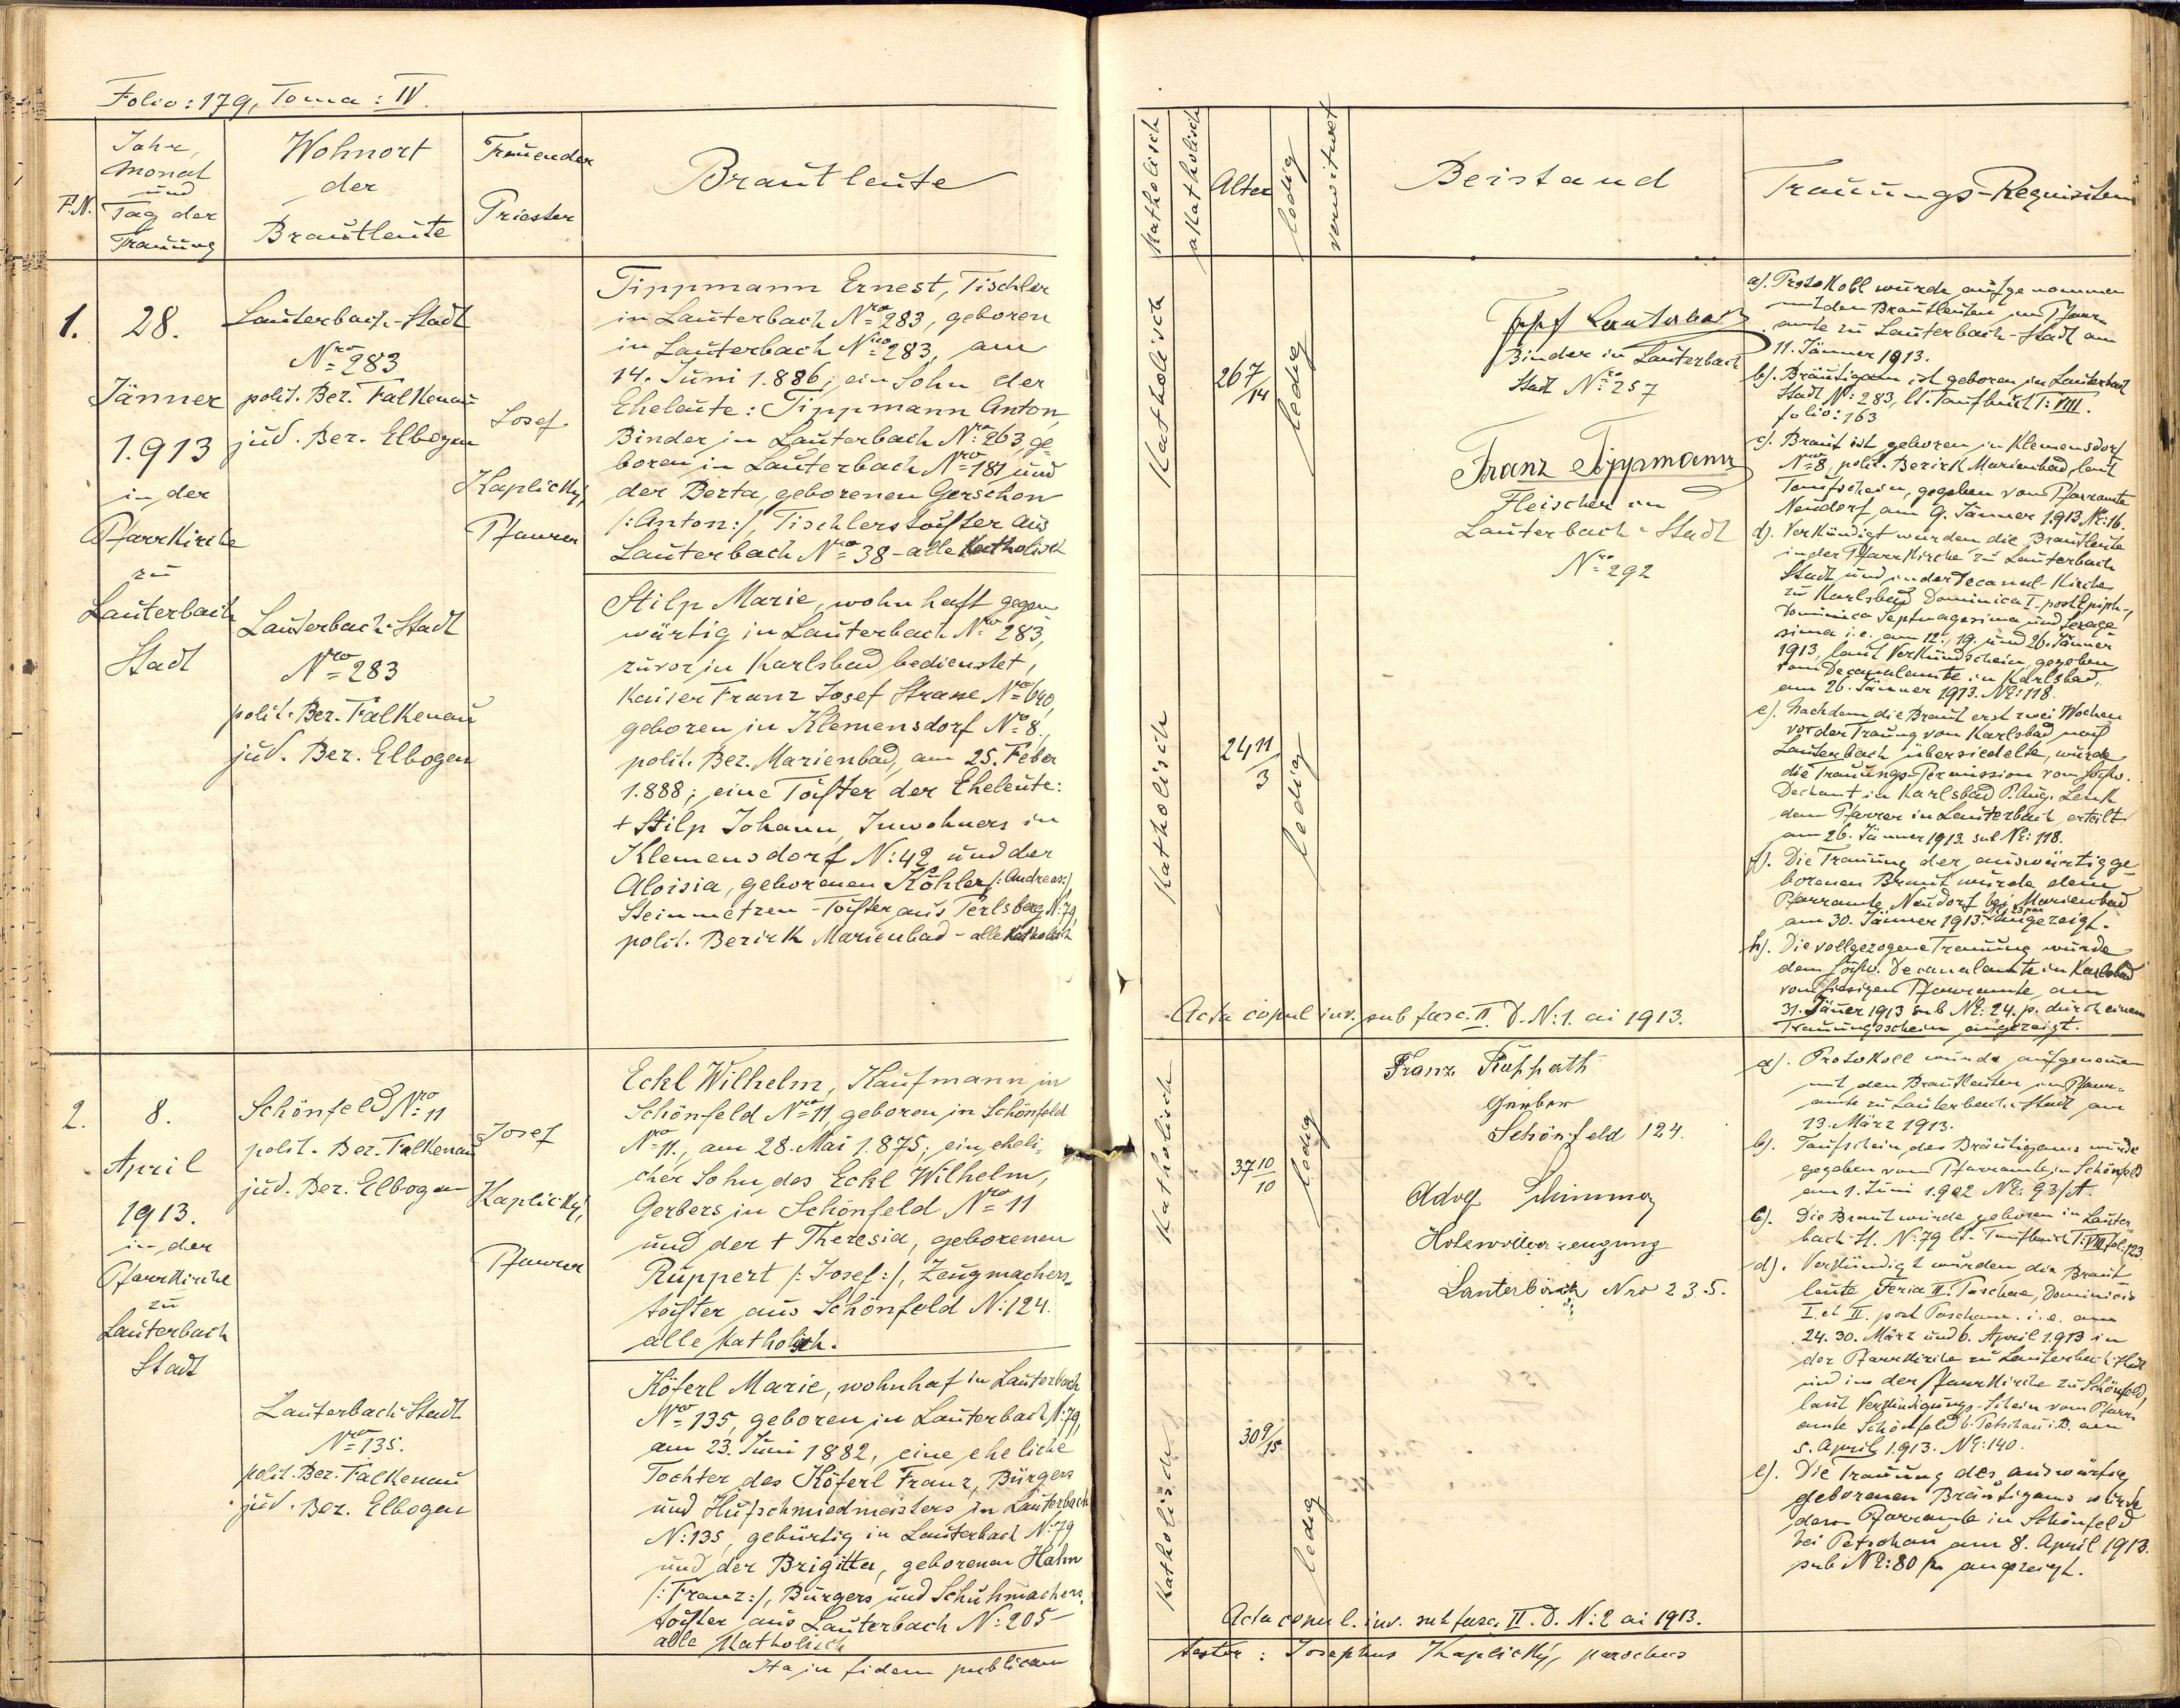 Folio: 179, Toma: IV.
F.N.
Jahr,
Monat
und
Tag der
Trauung
Wohnort
der
Brautleute
Trauender
Priester
Brautleute
1.
28.
Jänner
1.913
in der
Pfarrkirche
zu
Lauterbach
Stadt
Lauterbach-Stadt
Nro 283
polit. Bez. Falkenau
jud. Bez. Elbogen
Lauterbach-Stadt
Nro 283
polit. Bez. Falkenau
jud. Bez. Elbogen
Josef
Kaplický,
Pfarrer
Tippmann Ernest, Tischler
in Lauterbach Nro 283, geboren
in Lauterbach Nro 283, am
14. Juni 1.886; ein Sohn der
Eheleute: Tippmann Anton,
Binder in Lauterbach Nro 263, ge-
boren in Lauterbach Nro 181 und
der Berta, geborenen Gerschon
/:Anton:/, Tischlerstochter aus
Lauterbach Nro 38 - alle katholisch
Stilp Marie, wohnhaft gegen
wärtig in Lauterbach Nro 283,
zuvor in Karlsbad bedienstet,
Kaiser Franz Josef Strasse Nro 640,
geboren in Klemensdorf No 8.,
polit. Bez. Marienbad, am 25. Feber
1.888; eine Tochter der Eheleute:
+ Stilp Johann, Inwohners in
Klemensdorf N: 42 und der
Aloisia, geborenen Köhler /:Andreas:/,
Steinmetzen-Tochter aus Perlsberg N: 79,
polit. Bezirk Marienbad - alle katholisch
2.
8.
April
1913.
in der
Pfarrkirche
zu
Lauterbach
Stadt
Schönfeld Nro 11
polit. Bez. Falkenau
jud. Bez. Elbogen
Lauterbach-Stadt
Nro 135.
polit. Bez. Falkenau
jud. Bez. Elbogen
Josef
Kaplický,
Pfarrer
Eckl Wilhelm, Kaufmann in
Schönfeld Nro 11 geboren in Schönfeld
Nro 11., am 28. Mai 1.875; ein eheli-
cher Sohn des Eckl Wilhelm,
Gerbers in Schönfeld Nro 11
und der + Theresia, geborenen
Ruppert /:Josef:/, Zeugmachers-
tochter aus Schönfeld N: 124.
alle katholisch.
Köferl Marie, wohnhaf in Lauterbach
Nro 135, geboren in Lauterbach N: 79,
am 23. Juni 1882, eine eheliche
Tochter des Köferl Franz, Bürgers
und Hufschmiedmeisters in Lauterbach
N: 135, gebürtig in Lauterbach N: 79
und der Brigitta, geborenen Hahn
/:Franz:/, Bürgers und Schuhmachers-
tochter aus Lauterbach N: 205 -
alle katholisch
Ita in fidem publicam
Katholisch
akatholisch
Alter
ledig
verwitwet
Beistand
Trauungs-Requisiten
Katholisch
26 7/14
ledig
Katholisch
24 11/3
ledig
Josef Lauterbach
Binder in Lauterbach
Stadt Nro 257
Franz Tippmann
Fleischer in
Lauterbach-Stadt
Nro 292
a). Protokoll wurde aufgenommen
mit den Brautleuten im Pfarr-
amte zu Lauterbach-Stadt am
11. Jänner 1913.
b). Bräutigam ist geboren in Lauterbach
Stadt N: 283, lt. Taufbuch T: VIII.
folio: 163
c). Braut ist geboren in Klemensdorf
Nro 8, polit. Bezirk Marienbad, laut
Taufschein, gegeben vom Pfarramte
Neudorf, am 9. Jänner 1.913 NE: 16.
d). Verkündigt wurden die Brautleute
in der Pfarrkirche zu Lauterbach
Stadt und in der Decanal-Kirche
zu Karlsbad Dominica I. post Epiph.,
Dominica Septuagesima und Sexage
sima i. e. am 12., 19. und 26. Jänner
1913, laut Verkündschein, gegeben
vom Decanalamte in Karlsbad,
am 26. Jänner 1913. NE: 118.
e). Nachdem die Braut erst zwei Wochen
vor der Trauung von Karlsbad nach
Lauterbach übersiedelte, wurde
die Trauungs-Permission vom hochw.
Dechant in Karlsbad P. Aug. Lenk
dem Pfarrer in Lauterbach erteilt
am 26. Jänner 1913 sub NE: 118.
f). Die Trauung der auswärtig ge-
borenen Braut wurde dem
Pfarramte Neudorf bei Marienbad
am 30. Jänner 1913 angezeigt.
h). Die vollzogene Trauung wurde
dem hochw. Decanalamte in Karlsbad
vom hiesigen Pfarramte am
31. Jäner 1913 sub NE: 24. p. durch einen
Trauungsschein angezeigt.
Acta copul. inv. sub fasc. II. D. N: 1. ai 1913.
Katholisch
37 10/10
ledig
Katholisch
30 9/15
ledig
Franz Rupperth
Gerber
Schönfeld 124.
Adolf
Lauterbach Nro 235.
a). Protokoll wurde aufgenommen
mit den Brautleuten im Pfarr-
amte zu Lauterbach-Stadt am
13. März 1913.
b). Taufschein des Bräutigams wurde
gegeben vom Pfarramte in Schönfeld
am 1. Juni 1.902 NE: 93/A.
c). Die Braut wurde geboren in Lauter-
bach-St. N: 79 lt. Taufbuch T: VIII fol. 123
d). Verkündigt wurden die Braut
leute Feria II. Paschae, Dominicis
I. et II. post Pascham. i. e. am
24. 30. März und 6. April 1.913 in
der Pfarrkirche zu Lauterbach-Stadt
und in der Pfarrkirche zu Schönfeld,
laut Verkündigungs-Schein vom Pfarr-
amte Schönfeld b. Petschau i. B. am
5. April 1.913. NE: 140.
e). Die Trauung des auswärtig
geborenen Bräutigams wurde
dem Pfarramte in Schönfeld
bei Petschau am 8. April 1913.
sub NE: 80 angezeigt.
Acta copul. inv. sub fasc. II. D. N: 2 ai 1913.
testor: Josephus Kaplický, parochus